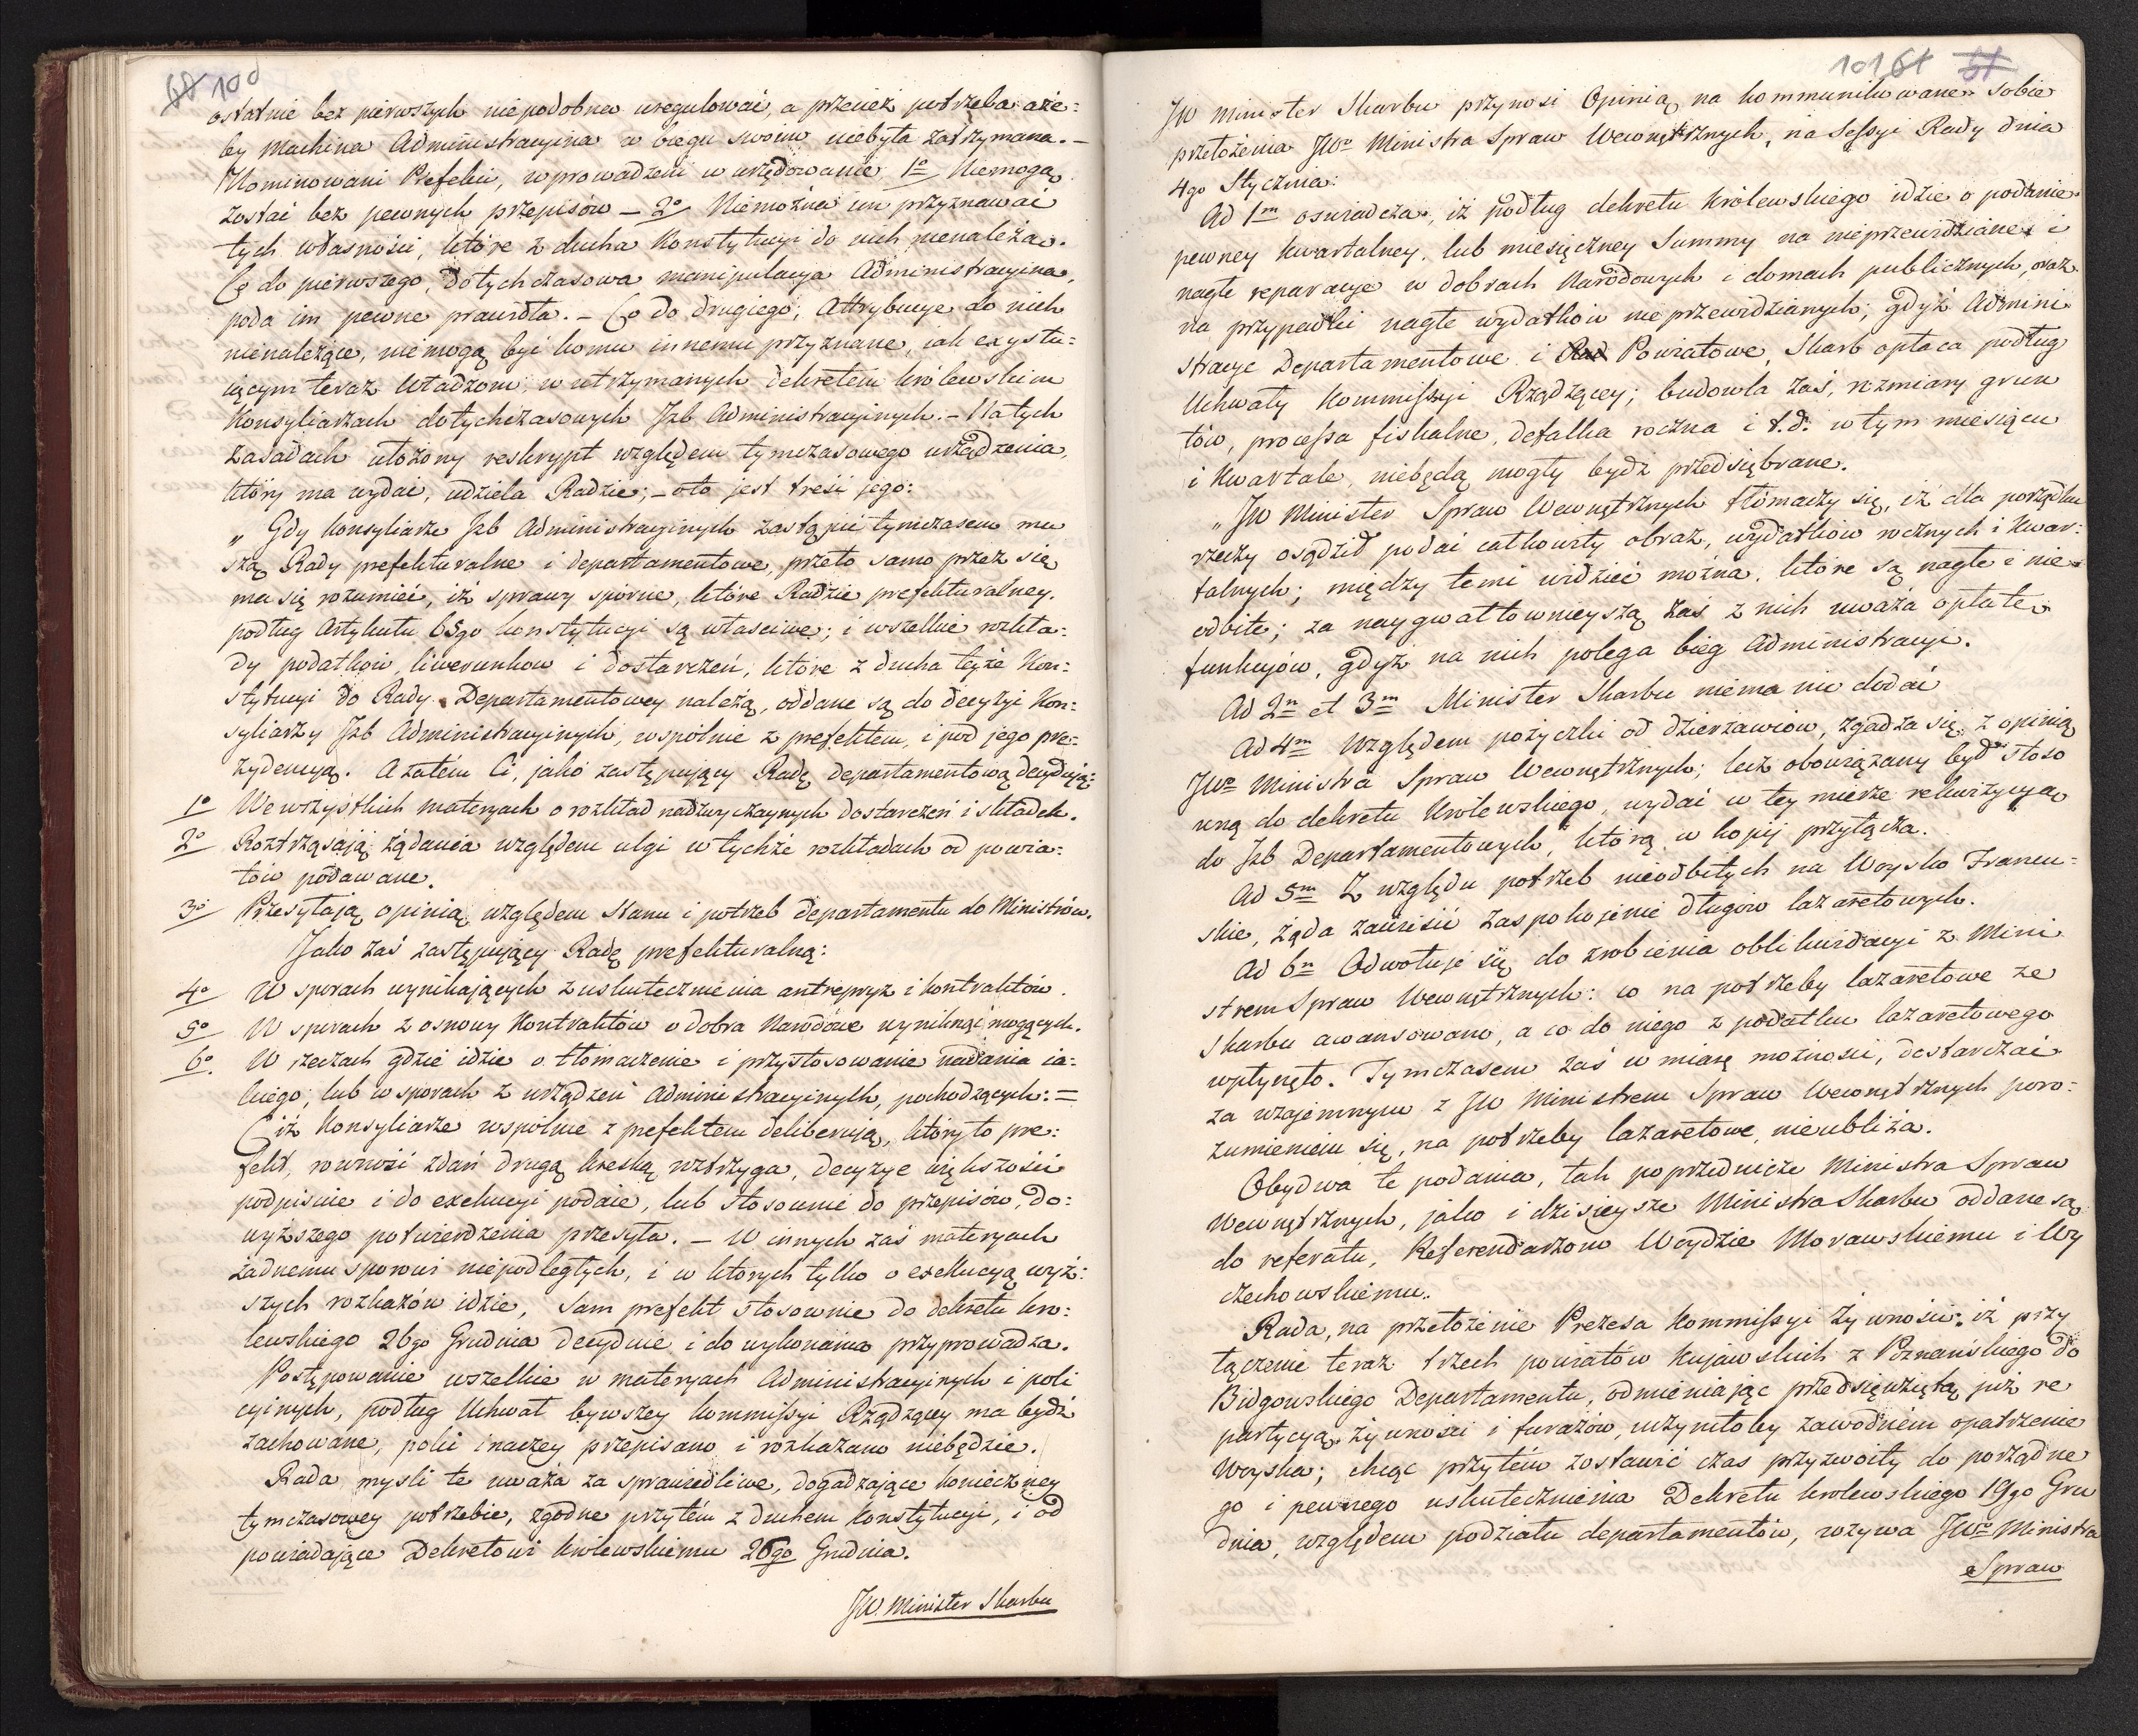 100
ostatnie bez pierwszych niepodobna uregulować, a przecież potrzeba aże=
by Machina Administracyina w biegu swoim niebyła zatrzymana. –
Nominowani Prefekci, wprowadzeni w urzędowanie, 1o Niemogą
zostać bez pewnych przepisów – 2o Niemożna im przyznawać
tych własności, które z ducha Konstytucyi do nich nienależą.
Co do pierwszego, dotychczasowa manipulacya Administracyina,
poda im pewne prawidła. – Co do drugiego, Attrybucye do nich
nienależące, niemogą być komu innemu przyznane, iak exystu=
iącym teraz Władzom, w utrzymanych dekretem królewskim
Konsyliarzach dotychczasowych Izb Administracyinych. – Na tych
zasadach ułożony reskrypt względem tymczasowego urządzenia,
który ma wydać, udziela Radzie; – oto jest treść jego:
„Gdy Konsyliarze Izb Administracyinych zastąpić tymczasem mu
szą Rady prefekturalne i departamentowe, przeto samo przez się
ma się rozumieć, iż sprawy sporne, które Radzie prefekturalney.
podług Artykułu 65go konstytucyi są właściwe; i wszelkie rozkła=
dy podatków, liwerunkow i dostarczeń, które z ducha teyże Kon=
stytucyi do Rady Departamentowey należą, oddane są do decyzyi Kon=
syliarzy Izb Administracyinych, wspólnie z prefektem, i pod jego pre=
zydencyą. A zatém Ci, jako zastępujący Radę departamentową decydują:
1o We wszystkich materyach o rozkład nadzwyczaynych dostarczeń i składek.
2o Roztrząsają żądania względem ulgi w tychże rozkładach od powia=
tów podawane.
3o Przesyłają opinią względem Stanu i potrzeb departamentu do Ministrów.
Jako zaś zastępujący Radę prefekturalną:
4o W sporach wynikających z uskutecznienia antrepryz i kontraktów.
5o W sporach z osnowy Kontraktów o dobra Narodowe wyniknąć mogących.
6o W rzeczach gdzie idzie o tłomaczenie i przystosowanie nadania ia=
kiego, lub w sporach z urządzeń Administracyinych, pochodzących: =
Ciż Konsyliarze wspólnie z prefektem deliberują, który to pre=
fekt, rowność zdań drugą kreską rozstrzyga, decyzye większości
podpisuie i do exekucyi podaie, lub stosownie do przepisów, do=
wyższego potwierdzenia przesyła. – W innych zaś materyach
żadnemu sporowi niepodległych, i w których tylko o exekucyą wyż=
szych rozkazów idzie, Sam prefekt stosownie do dekretu kro=
lewskiego 26go Grudnia decyduie i do wykonania przyprowadza.
Postępowanie wszelkie w materyach Administracyinych i poli
cyinych, podług Uchwał bywszey Kommissyi Rządzącey ma bydź
zachowane, poki inaczey przepisano i rozkazano niebędzie.
Rada myśli te uważa za sprawiedliwe, dogadzające konieczney
tymczasowey potrzebie, zgodne przytém z duchem Konstytucyi, i od
powiadające Dekretowi królewskiemu 26go Grudnia.
JW. Minister Skarbu
101
JW Minister Skarbu przynosi Opinią na kommunikowane sobie
przełożenia JWo Ministra Spraw Wewnętrznych, na Sessyi Rady dnia
4go Stycznia:
Ad 1m oswiadcza, iż podług dekretu Królewskiego idzie o podanie
pewney kwartalney, lub miesięczney Summy na nieprzewidziane i
nagłe reparacye w dobrach Narodowych i domach publicznych, oraz
na przypadki nagłe wydatków nieprzewidzianych; gdyż Admini
stracye Departamentowe i Powiatowe, Skarb opłaca podług
Uchwały Kommissyi Rządzącey; budowla zaś, rozmiary grun
tów, processa fiskalne, defalka roczna i t.d. w tym miesiącu
i Kwartale, niebędą mogły bydź przedsiębrane.
„JW Minister Spraw Wewnętrznych tłomaczy się, iż dla porządku
rzeczy osądził podać całkowity obraz, wydatków rocznych i kwar=
talnych; między temi widzieć można, które są nagłe i nie
odbite; za naygwałtownieyszą zaś z nich uważa opłatę
funkcyów, gdyż na nich polega bieg Administracyi.
Ad 2m et 3m Minister Skarbu niema nic dodać
Ad 4m Względem pożyczki od dzierżawców, zgadza się z opinią
JWo Ministra Spraw Wewnętrznych; lecz obowiązany był stoso
wną do dekretu Królewskiego, wydać w tey mierze rekwizycyą
do Izb Departamentowych, którą w kopij przyłącza.
Ad 5m Z względu potrzeb nieodbitych na Woysko Francu=
skie, żąda zawiesić zaspokojenie długów lazaretowych.
Ad 6m Odwołuje się do zrobienia oblikwidacyi z Mini
strem Spraw Wewnętrznych: co na potrzeby lazaretowe ze
Skarbu awansowano, a co do niego z podatku lazaretowego
wpłynęło. Tymczasem zaś w miarę możności, dostarczać
za wzajemnym z JW Ministrem Spraw Wewnętrznych poro=
zumieniem się, na potrzeby lazaretowe, nieubliża.
Obydwa te podania, tak poprzednicze Ministra Spraw
Wewnętrznych, jako i dzisieysze Ministra Skarbu oddane są
do referatu, Referendarzom Woydzie Morawskiemu i Wy
czechowskiemu.
Rada, na przełożenie Prezesa Kommissyi Żywności: iż przy
łączenie teraz trzech powiatów Kujawskich z Poznańskiego do
Bidgowskiego Departamentu, odmieniając przedsięwziętą już re
partycyą żywności i furażów, uczyniłoby zawodném opatrzenie
Woyska; chcąc przytém zostawić czas przyzwoity do porządne
go i pewnego uskutecznienia Dekretu królewskiego 19go Gru
dnia, względem podziału departamentów, wzywa JWo Ministra
Spraw